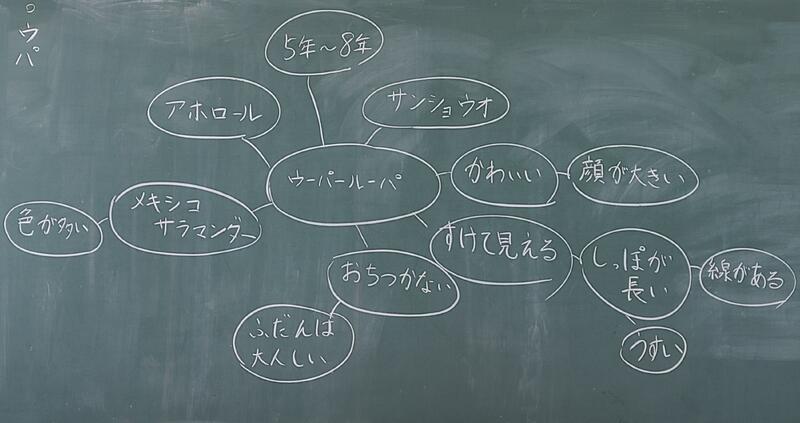 ○ウパ
5年～8年
アホロール
サンショウウオ
ウーパールーパ
かわいい
顔が大きい
メキシコ
サラマンダー
色が多い
すけて見える
しっぽが
長い
線がある
うすい
おちつかない
ふだんは
大人しい